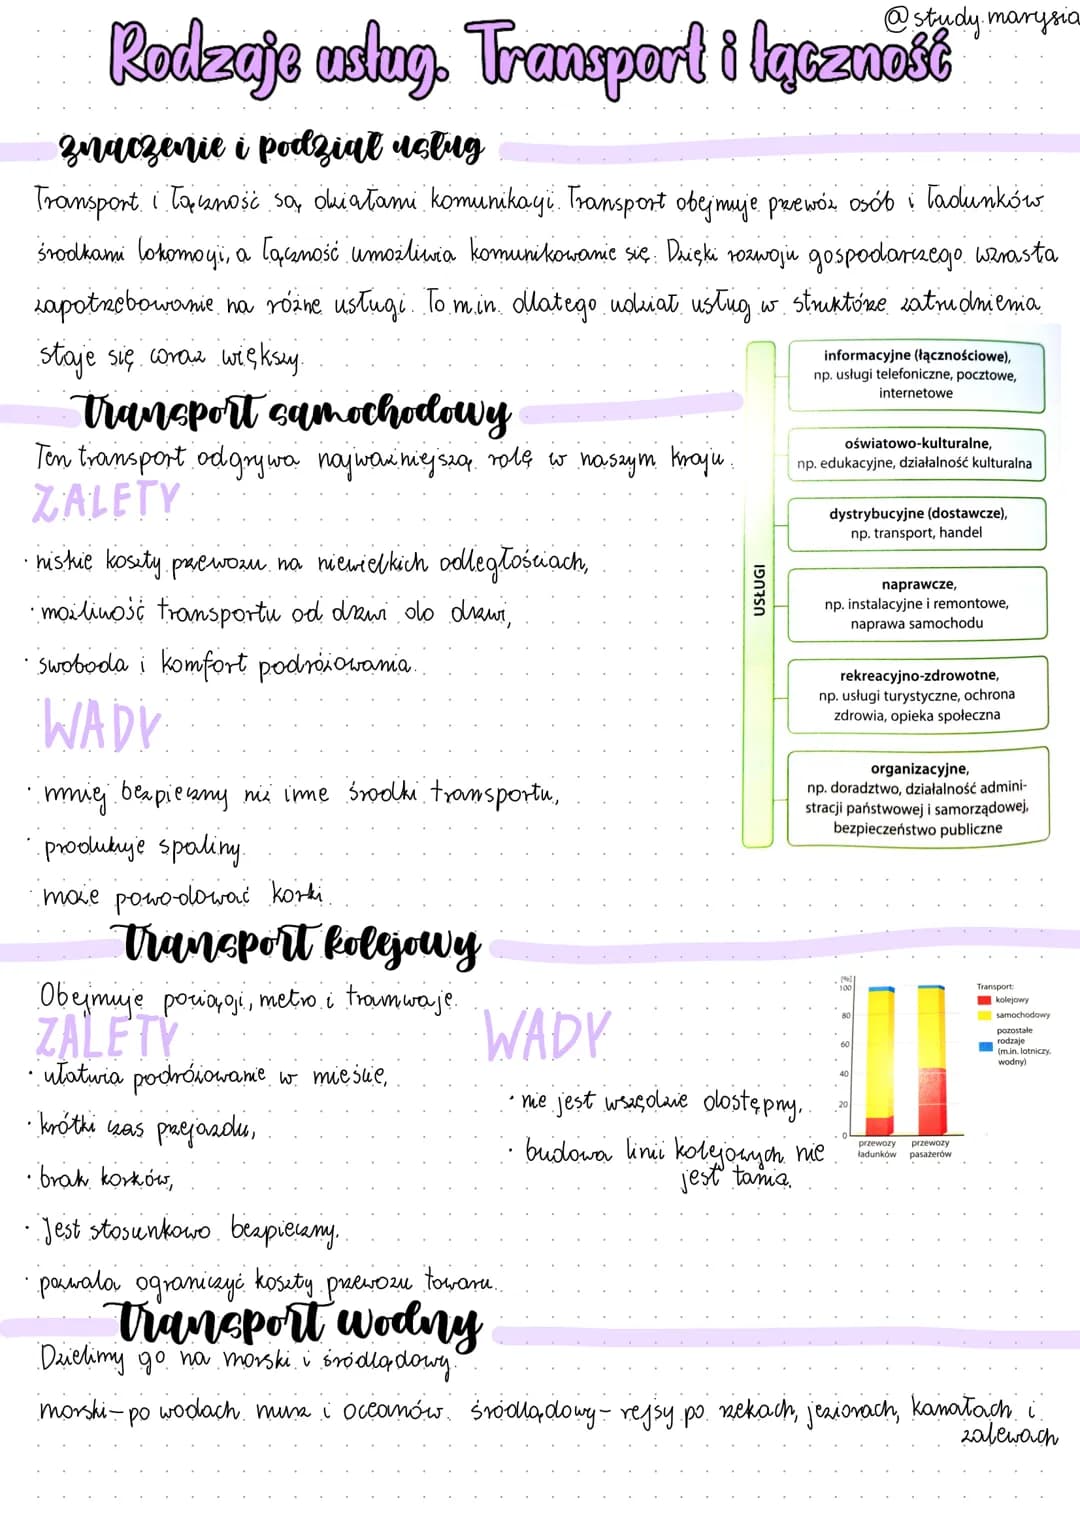 @study.marysia
Rodzaje usług. Transport i łączność
znaczenie i podział usług
Transport i łączność są działami komunikacji. Transport obejmuje przewóz osób i ładunków
środkami lokomocji, a łączność umożliwia komunikowanie się. Dzięki rozwoju gospodarczego wzrasta
zapotrzebowanie na różne usługi. To m.in. dlatego udział usług w struktórze zatrudnienia
staje się coraz większy.
USŁUGI
informacyjne (łącznościowe),
np. usługi telefoniczne, pocztowe,
internetowe
oświatowo-kulturalne,
np. edukacyjne, działalność kulturalna
dystrybucyjne (dostawcze),
np. transport, handel
naprawcze,
np. instalacyjne i remontowe,
naprawa samochodu
rekreacyjno-zdrowotne,
np. usługi turystyczne, ochrona
zdrowia, opieka społeczna
organizacyjne,
np. doradztwo, działalność admini-
stracji państwowej i samorządowej,
bezpieczeństwo publiczne
transport samochodowy
Ten transport odgrywa najważniejszą rolę w naszym kraju.
ZALETY
· niskie koszty przewozu na niewielkich odległościach,
· możliwość transportu od drzwi do drzwi,
· swoboda i komfort podróżowania.
WADY
· mniej bezpieczny niż inne środki transportu,
· produkuje spaliny.
· może powodować korki.
transport kolejowy
Obejmuje pociągi, metro i tramwaje.
ZALETY
· ułatwia podróżowanie w mieście,
· krótki czas przejazdu,
· brak korków,
· Jest stosunkowo bezpieczny.
· pozwala ograniczyć koszty przewozu towaru.
WADY
· nie jest wszędzie dostępny,
· budowa linii kolejowych nie
jest tania.
[%]
100
80
60
40
20
0
przewozy ładunków
przewozy pasażerów
Transport:
kolejowy
samochodowy
pozostałe
rodzaje
(m.in. lotniczy,
wodny)
transport wodny
Dzielimy go na morski i śródlądowy.
morski - po wodach mórz i oceanów. śródlądowy - rejsy po rzekach, jeziorach, kanałach i
zalewach